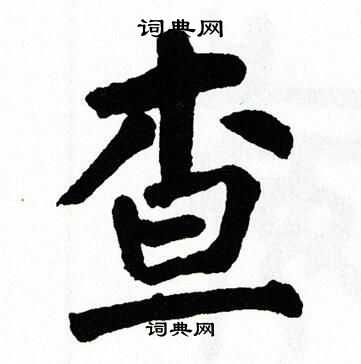 词典网
查
词典网